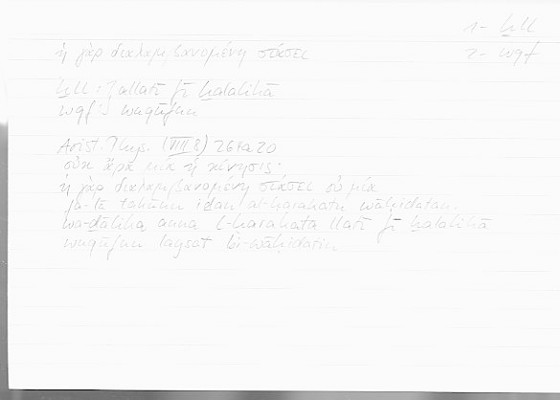 1- ḫll
ἡ γὰρ διαλαμβανομένη στάσει
2- wqf
ḫll : allatī fī ḫalalihā
wqf : wuqūfun
Arist. Phys. (VIII 8) 264a20
οὐκ ἄρα μία ἡ κίνησις·
ἡ γὰρ διαλαμβανομένη στάσει οὐ μία
fa-lā takūnu iḏan al-ḥarakatu wāḥidatan.
wa-ḏālika anna l-ḥarakata llatī fī ḫalalihā
wuqūfun laysat bi-wāḥidatin.